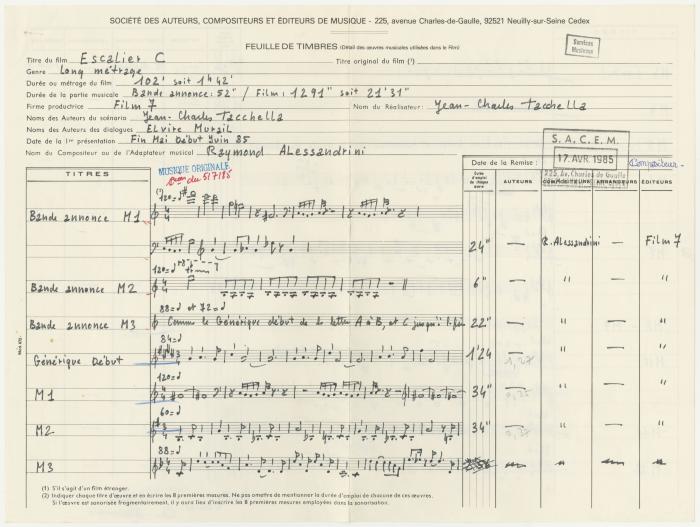 SOCIÉTÉ DES AUTEURS, COMPOSITEURS ET ÉDITEURS DE MUSIQUE - 225, avenue Charles-de-Gaulle, 92521 Neuilly-sur-Seine Cedex
FEUILLE DE TIMBRES (Détail des œuvres musicales utilisées dans le Film)
Services Musicaux
Titre du film Escalier C Titre original du film (¹)
Genre Long métrage
Durée ou métrage du film 102' soit 1H42'
Durée de la partie musicale Bande annonce: 52" / Film: 1291" soit 21'31"
Firme productrice Film 7 Nom du Réalisateur: Jean-Charles Tacchella
Noms des Auteurs du scénario Jean-Charles Tacchella
Noms des Auteurs des dialogues ELvire Murail
Date de la 1re présentation Fin Mai Début Juin 85
Nom du Compositeur ou de l'Adaptateur musical Raymond ALessandrini
S.A.C.E.M.
17. AVR 1985
225, Av. Charles de Gaulle
Date de la Remise : Compositeur
TITRES
MUSIQUE ORIGINALE
du 5/7/85
Durée d'emploi de chaque œuvre AUTEURS COMPOSITEURS ARRANGEURS ÉDITEURS
(²) 120=
Bande annonce M1
24" — R. Alessandrini — Film 7
120=
Bande annonce M2 6" — " — "
88= et 72=
Bande annonce M3 Comme le Générique début de la lettre A à B, et C jusqu'à la fin 22" — " — "
84=
Générique Début 1'24 — " — "
1,27
120=
M1 34" — " — "
0,35
60=
M2 34" — " — "
88=
M3
(1) S'il s'agit d'un film étranger.
(2) Indiquer chaque titre d'œuvre et en écrire les 8 premières mesures. Ne pas omettre de mentionner la durée d'emploi de chacune de ces œuvres.
Si l'œuvre est sonorisée fragmentairement, il y aura lieu d'inscrire les 8 premières mesures employées dans la sonorisation.